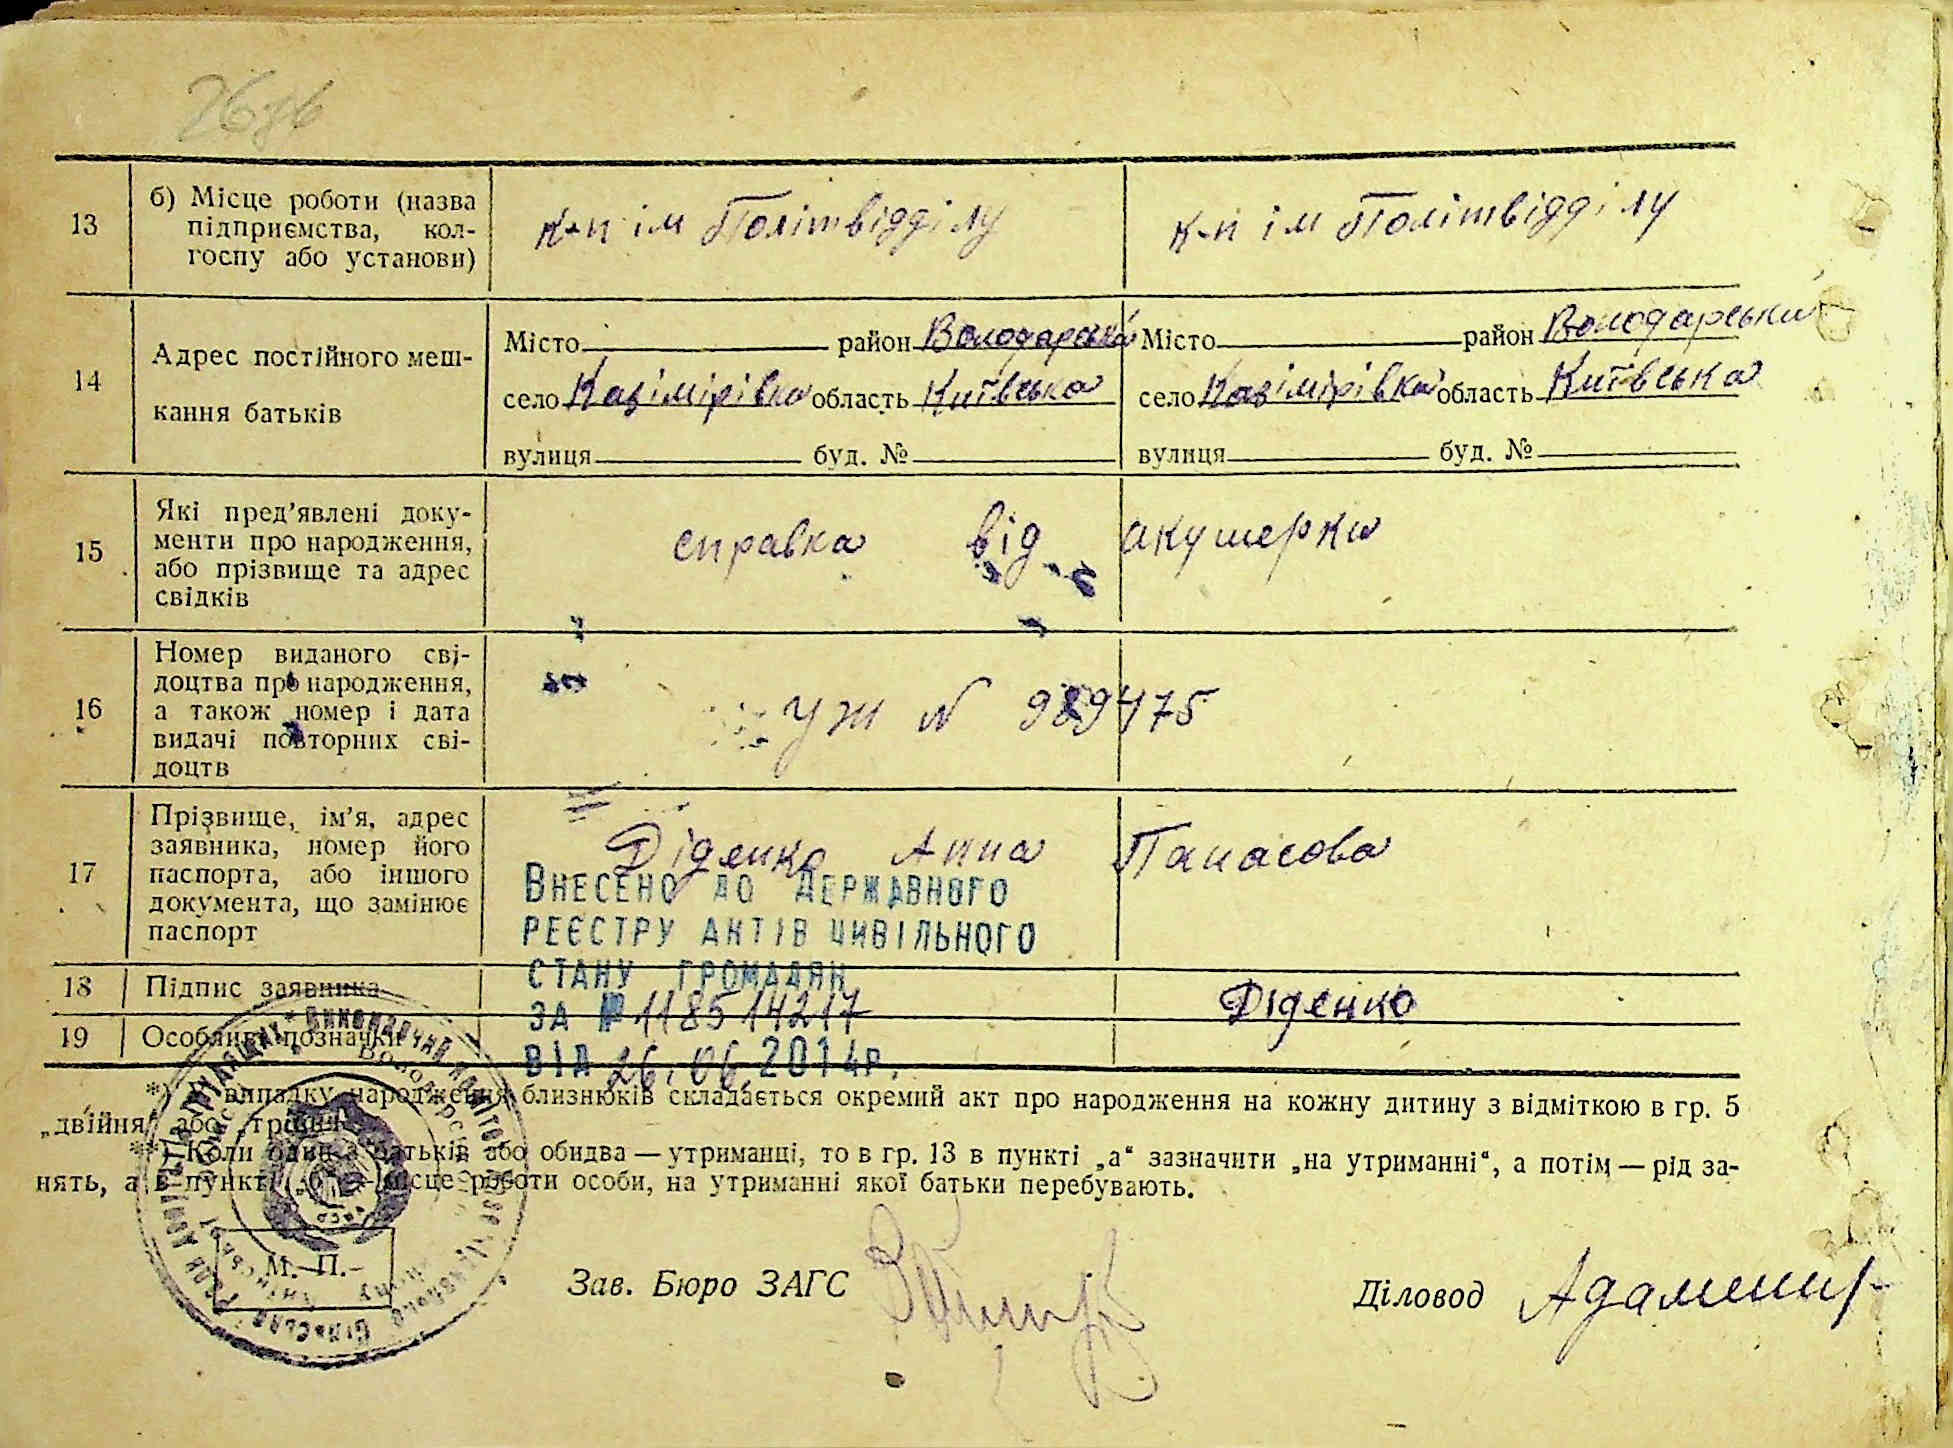 13
б) Місце роботи (назва
підприємства, кол-
госпу або установи)
к-п ім Політвідділу
к-п ім Політвідділу
14
Адрес постійного меш-
кання батьків
Місто район Володарськ
село Казімірівка область Київська
вулиця буд. №
Місто район Володарськи
село Казімірівка область Київська
вулиця буд. №
15
Які пред’явлені доку-
менти про народження,
або прізвище та адрес
свідків
справка від акушерки
16
Номер виданого сві-
доцтва про народження,
а також номер і дата
видачі повторних сві-
доцтв
УЖ N 989475
17
Прізвище, ім’я, адрес
заявника, номер його
паспорта, або іншого
документа, що замінює
паспорт
Діденко Анна Панасова
Внесено до Державного
реєстру актів цивільного
стану громадян
за № 118514217
від 26.06.2014р.
18
Підпис заявника
Діденко
19
Особливі позначки
*) У випадку народження близнюків складається окремий акт про народження на кожну дитину з відміткою в гр. 5
„двійня“ або „трійня“.
**) Коли один з батьків або обидва — утриманці, то в гр. 13 в пункті „а“ зазначити „на утриманні“, а потім — рід за-
нять, а в пункті „б“ — місце роботи особи, на утриманні якої батьки перебувають.
М. П.
Зав. Бюро ЗАГС
Діловод